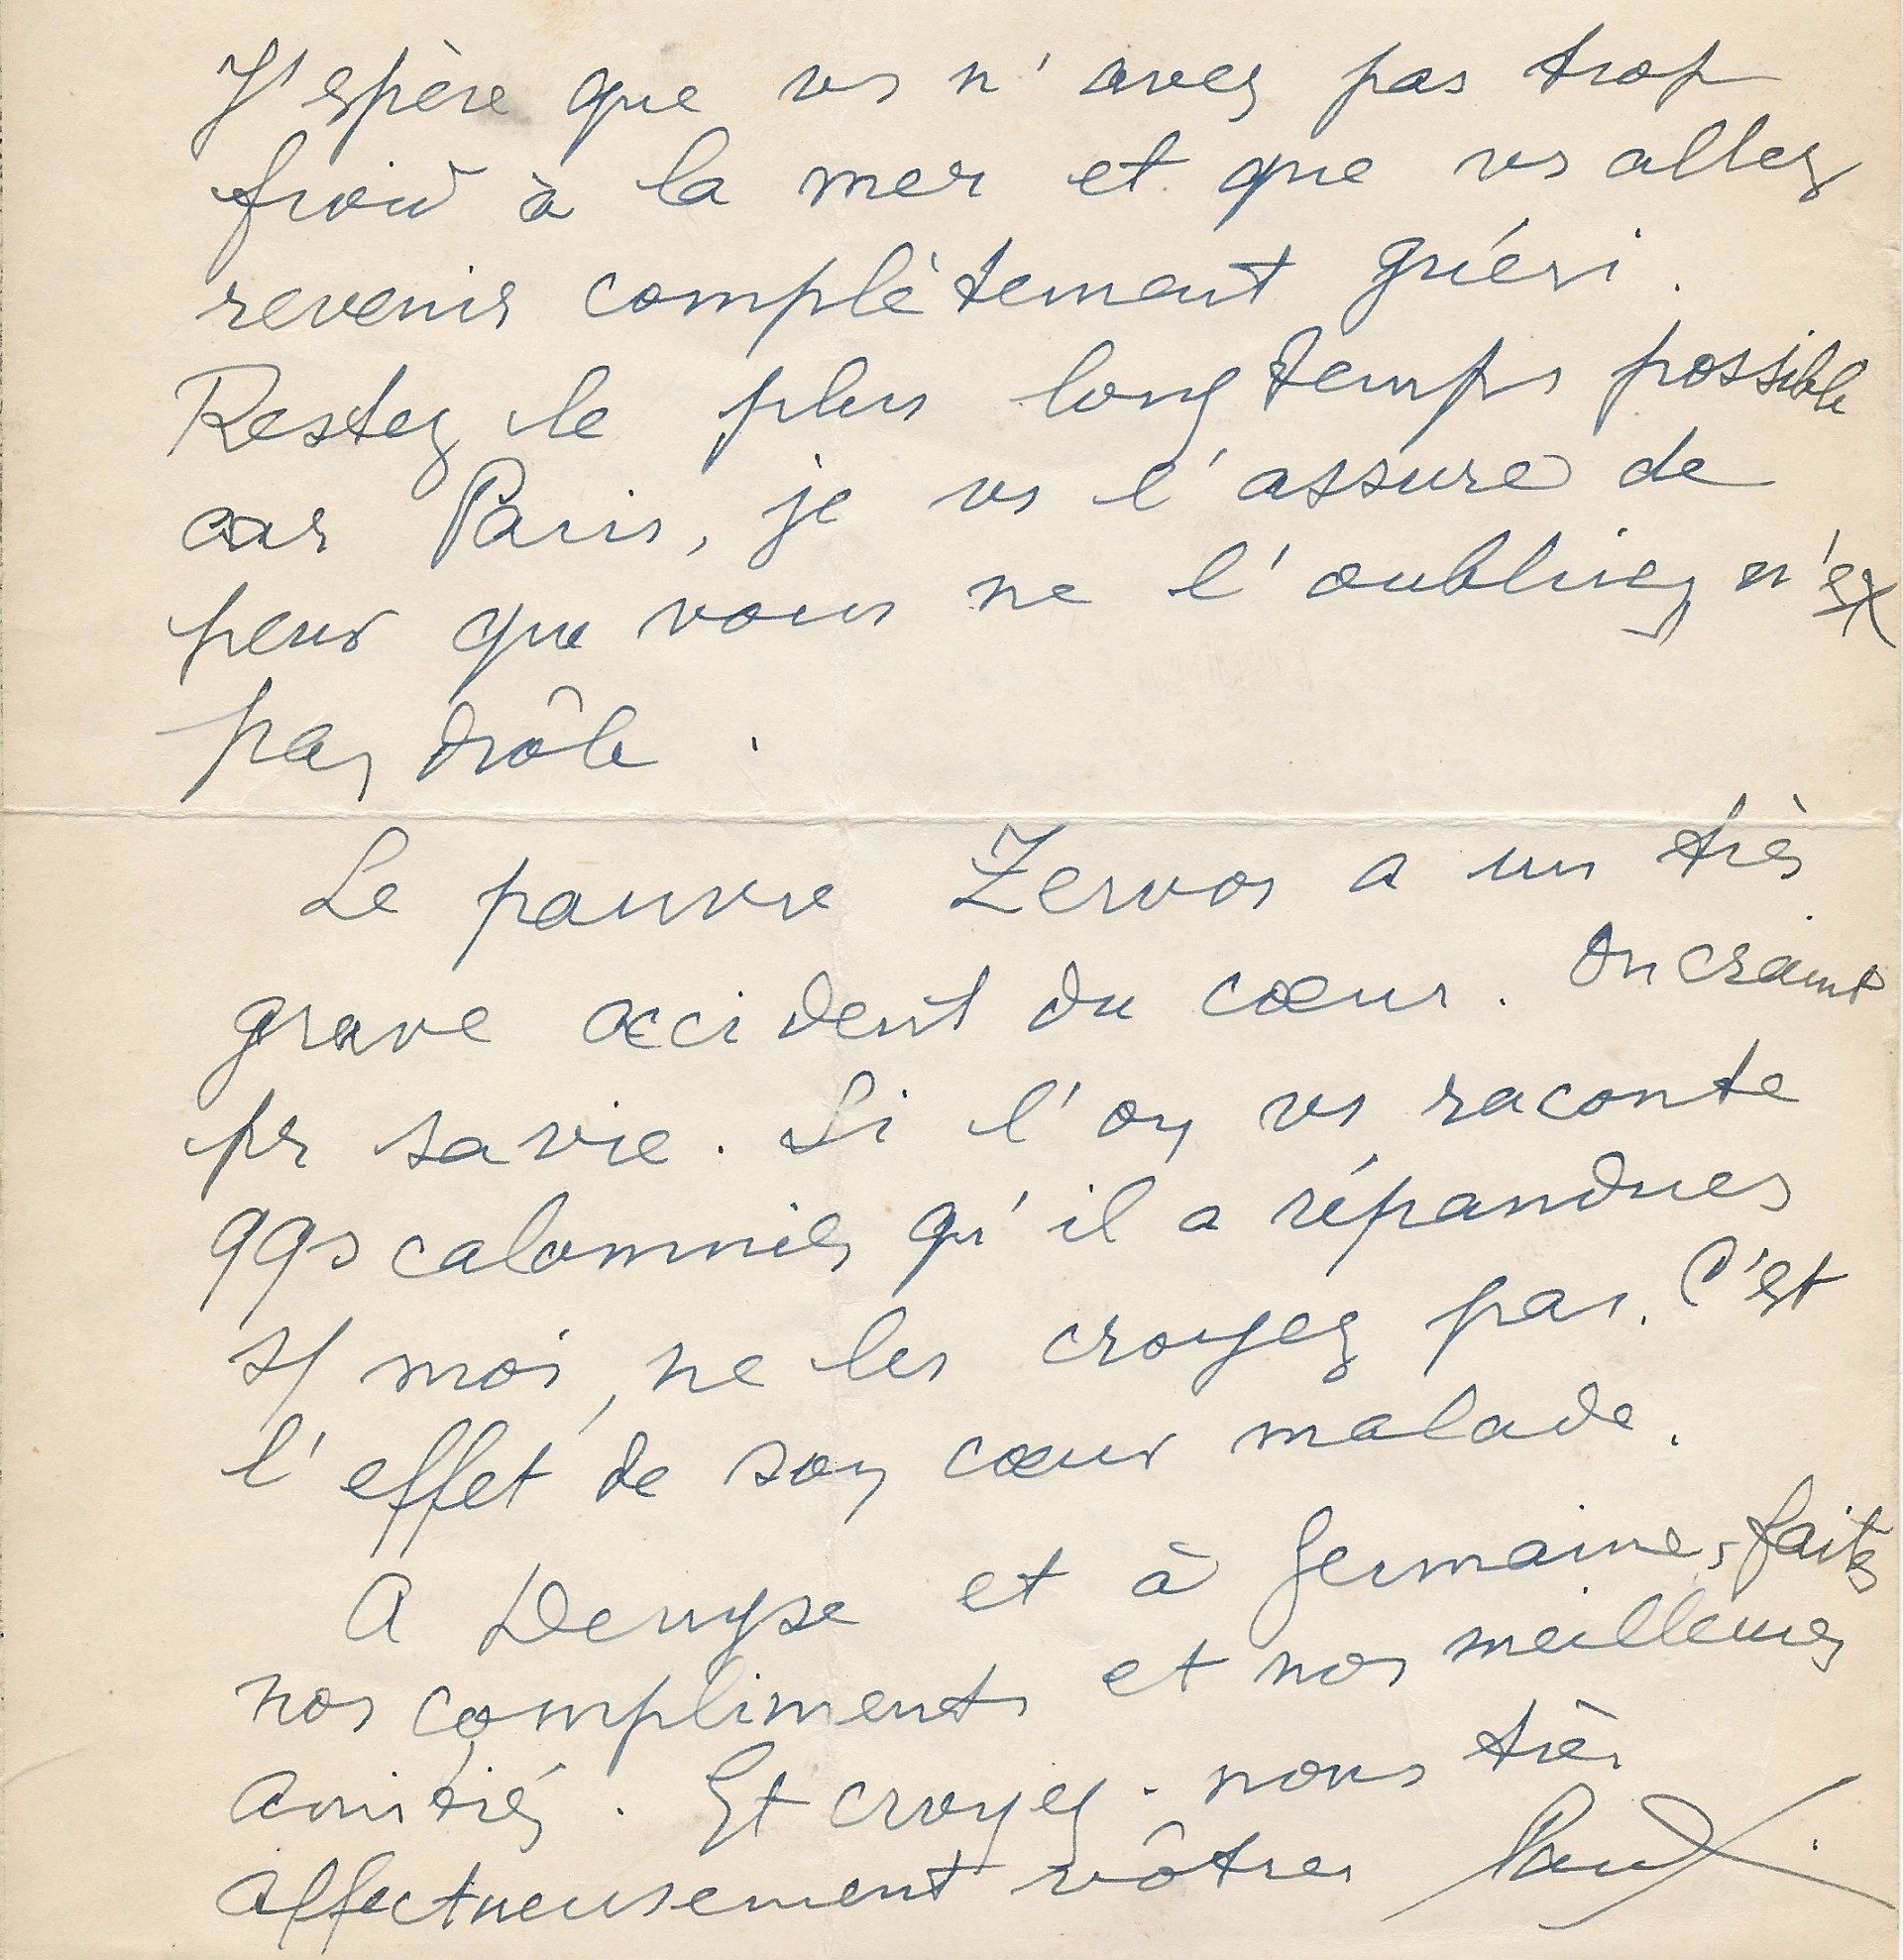 J'espère que vs n'avez pas trop
froid à la mer et que vs allez
revenir complètement guéri.
Restez le plus longtemps possible
car Paris, je vs l'assure de
peur que vous ne l'oubliiez n'est
pas drôle.
Le pauvre Zervos a un très
grave accident du cœur. On craint
pr sa vie. Si l'on vs raconte
qqs calomnies qu'il a répandues
s/ moi, ne les croyez pas. C'est
l'effet de son cœur malade.
A Denyse et à Germaine, faites
nos compliments et nos meilleures
amitiés. Et croyez-nous très
affectueusement vôtres Paul